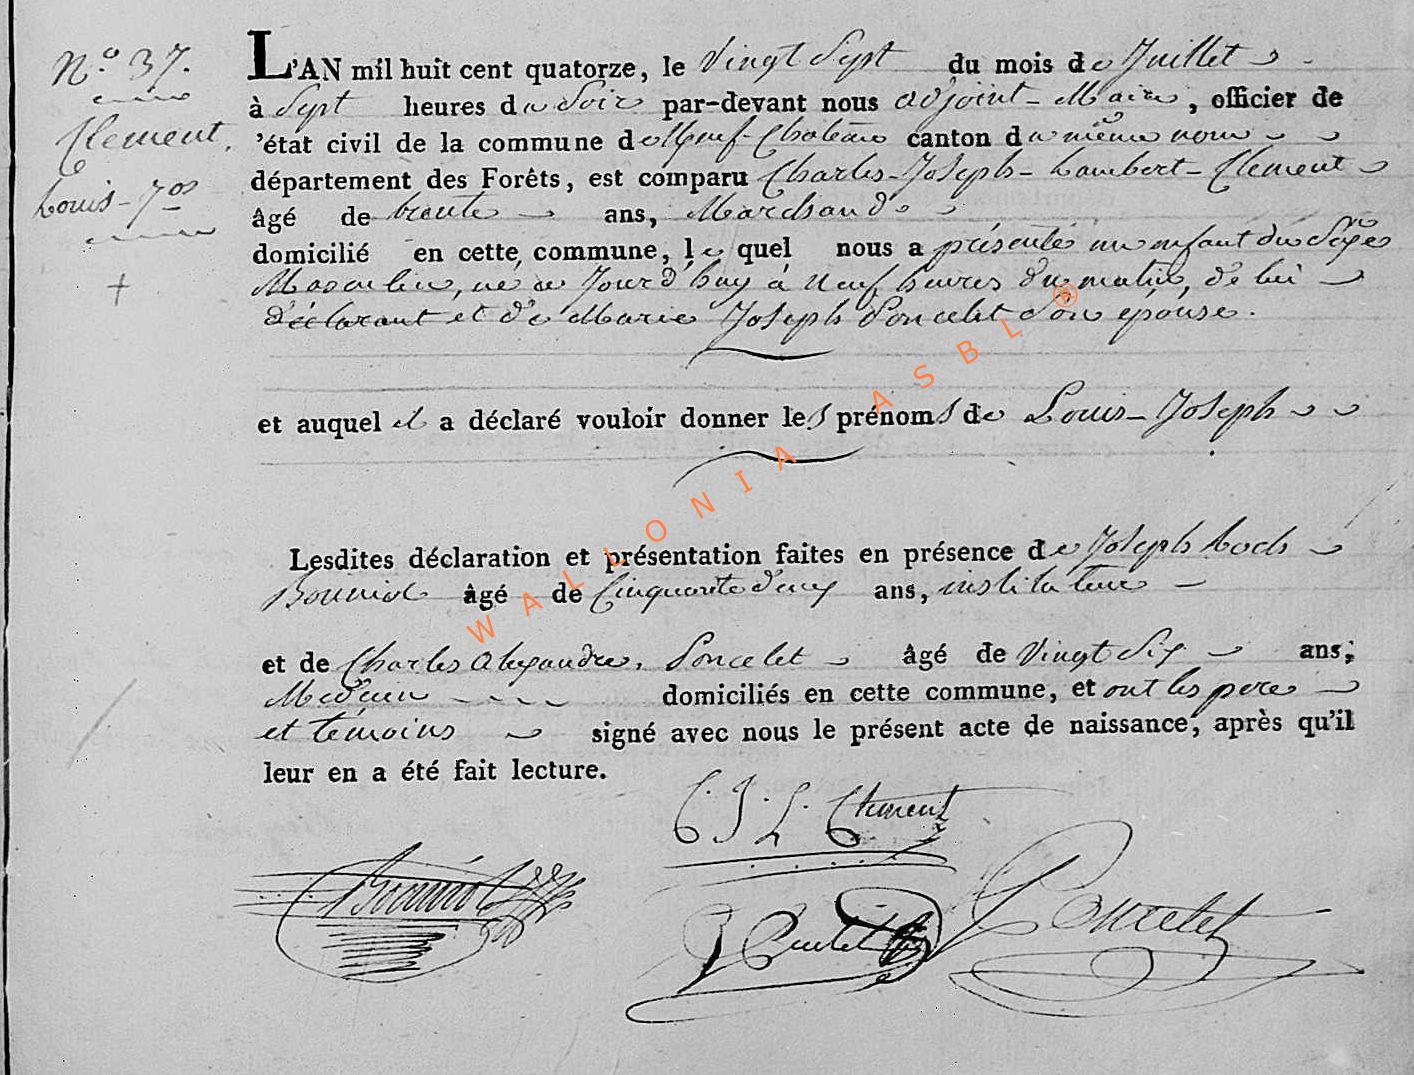 N.° 37.
Clement,
Louis-Jos
L'AN mil huit cent quatorze, le Vingt Sept du mois de Juillet
à Sept heures du Soir par-devant nous adjoint-Maire, officier de
'état civil de la commune de Neuf-Chateau canton du même nom
département des Forêts, est comparu Charles-Joseph-Lambert-Clement
âgé de trente ans, Marchand
domicilié en cette commune, lequel nous a présenté un enfant du Sexe
Masculin, né ce Jourd'huy à Neuf heures du matin, de lui
déclarant et de Marie Joseph Poncelet Son épouse.
et auquel il a déclaré vouloir donner les prénoms de Louis-Joseph
Lesdites déclaration et présentation faites en présence de Joseph Roch
Bonniol âgé de Cinquante deux ans, instituteur
et de Charles Alexandre Poncelet âgé de Vingt Six ans;
Medecin domiciliés en cette commune, et ont les pere
et témoins signé avec nous le présent acte de naissance, après qu'il
leur en a été fait lecture.
C. J. L. Clement
Bonniol
Poncelet
WALLONIA ASBL ®